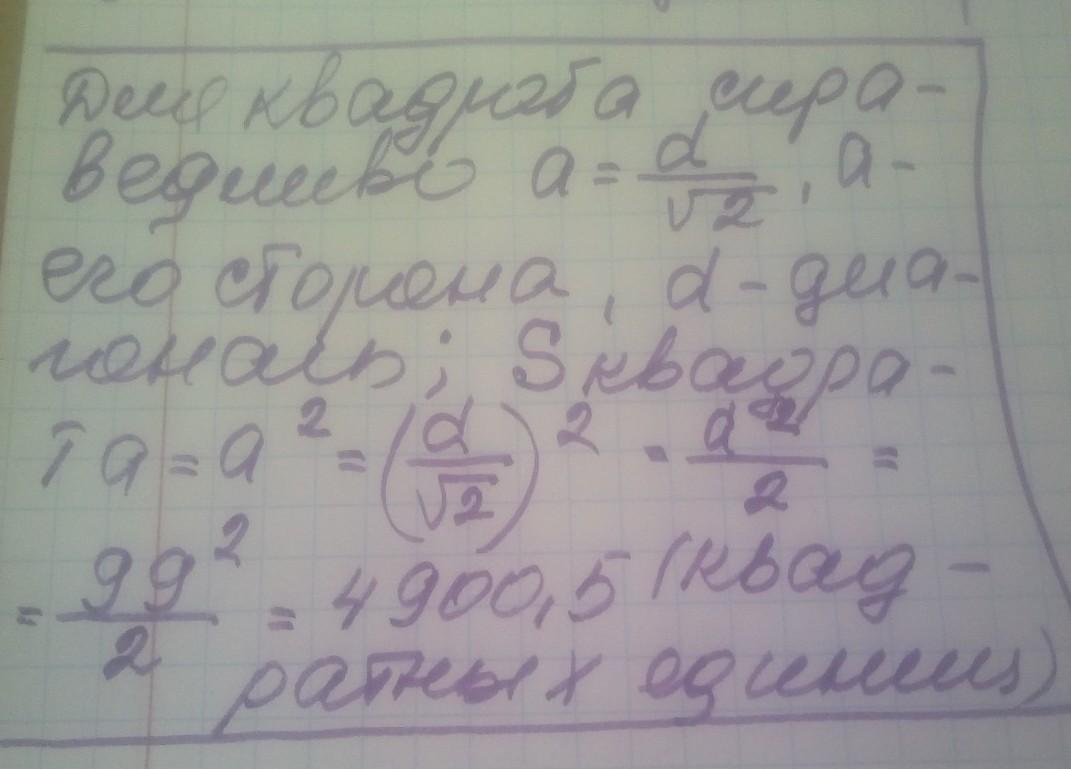 Для квадрата спра-
ведливо a = d/√2, a -
его сторона, d - диа-
гональ; S квадра-
та = a² = (d/√2)² = d²/2 =
= 99²/2 = 4900,5 (квад-
ратных единиц)